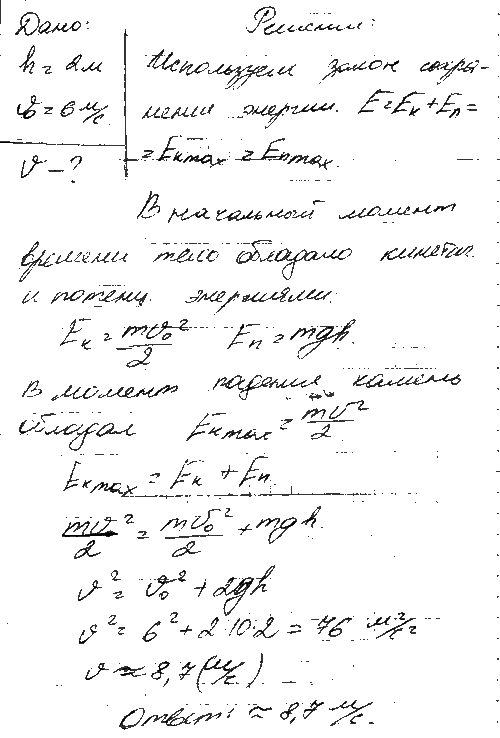 Дано: Решение:
h = 2м Используем закон сохра-
v₀ = 6 м/с нения энергии. E = Eк + Eп =
v – ? = Eк max = Eп max.
В начальный момент
времени тело обладало кинетич.
и потенц. энергиями.
Eк = mv₀²/2 Eп = mgh.
В момент падения камень
обладал Eк max = mv²/2
Eк max = Eк + Eп
mv²/2 = mv₀²/2 + mgh
v² = v₀² + 2gh
v² = 6² + 2·10·2 = 76 м²/с²
v ≈ 8,7 (м/с)
Ответ: ≈ 8,7 м/с.